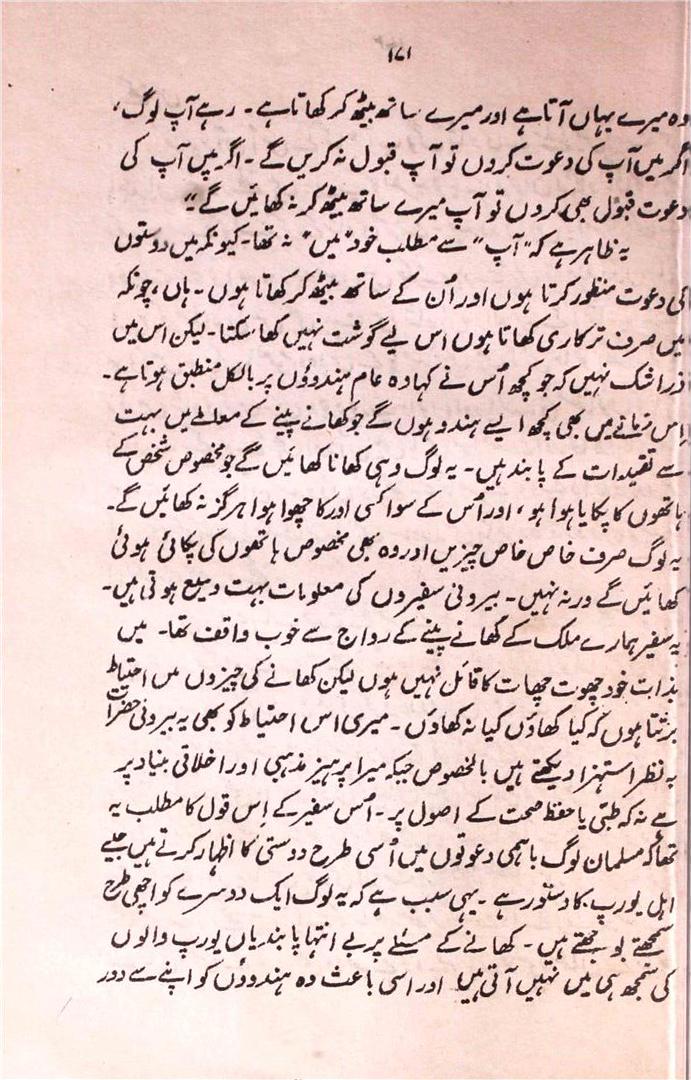 ۱۷۱
وہ میرے یہاں آتا ہے اور میرے ساتھ بیٹھ کر کھاتا ہے۔ رہے آپ لوگ،
اگر میں آپ کی دعوت کروں تو آپ قبول نہ کریں گے۔ اگر میں آپ کی
دعوت قبول بھی کروں تو آپ میرے ساتھ بیٹھ کر نہ کھائیں گے"
یہ ظاہر ہے کہ "آپ" سے مطلب خود "میں" نہ تھا۔ کیونکہ میں دوستوں
کی دعوت منظور کرتا ہوں اور اُن کے ساتھ بیٹھ کر کھاتا ہوں۔ ہاں، چونکہ
میں صرف ترکاری کھاتا ہوں اس لیے گوشت نہیں کھا سکتا۔ لیکن اس میں
ذرا شک نہیں کہ جو کچھ اُس نے کہا وہ عام ہندوؤں پر بالکل منطبق ہوتا ہے۔
اِس زمانے میں بھی کچھ ایسے ہندو ہوں گے جو کھانے پینے کے معاملے میں بہت
سے تقیدات کے پابند ہیں۔ یہ لوگ وہی کھانا کھائیں گے جو مخصوص شخص کے
ہاتھوں کا پکایا ہوا ہو، اور اُس کے سوا کسی اور کا چھوا ہوا ہرگز نہ کھائیں گے۔
یہ لوگ صرف خاص خاص چیزیں اور وہ بھی مخصوص ہاتھوں کی پکائی ہوئی
کھائیں گے ورنہ نہیں۔ بیرونی سفیروں کی معلومات بہت وسیع ہوتی ہیں۔
یہ سفیر ہمارے ملک کے کھانے پینے کے رواج سے خوب واقف تھا۔ میں
بذات خود چھوت چھات کا قائل نہیں ہوں لیکن کھانے کی چیزوں میں احتیاط
برتتا ہوں کہ کیا کھاؤں کیا نہ کھاؤں۔ میری اس احتیاط کو بھی یہ بیرونی حضرات
بہ نظر استہزا دیکھتے ہیں بالخصوص جبکہ میرا پرہیز مذہبی اور اخلاقی بنیاد پر
ہے نہ کہ طبّی یا حفظ صحت کے اصول پر۔ اُس سفیر کے اِس قول کا مطلب یہ
تھا کہ مسلمان لوگ باہمی دعوتوں میں اُسی طرح دوستی کا اظہار کرتے ہیں جیسے
اہل یورپ کا دستور ہے۔ یہی سبب ہے کہ یہ لوگ ایک دوسرے کو اچھی طرح
سمجھتے بوجھتے ہیں۔ کھانے کے مسئلے پر بے انتہا پابندیاں یورپ والوں
کی سمجھ ہی میں نہیں آتی ہیں اور اسی باعث وہ ہندوؤں کو اپنے سے دور